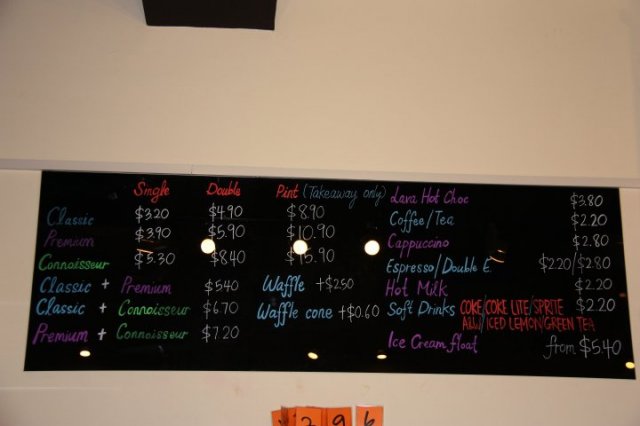 Single Double Pint (Takeaway only)
Classic $3.20 $4.90 $8.90
Premium $3.90 $5.90 $10.90
Connoisseur $5.30 $8.40 $15.90
Classic + Premium $5.40
Classic + Connoisseur $6.70
Premium + Connoisseur $7.20
Waffle +$2.50
Waffle cone +$0.60
Lava Hot Choc $3.80
Coffee/Tea $2.20
Cappuccino $2.80
Espresso/Double E. $2.20/$2.80
Hot Milk $2.20
Soft Drinks COKE/COKE LITE/SPRITE $2.20
A&W/ICED LEMON/GREEN TEA
Ice Cream float from $5.40
296